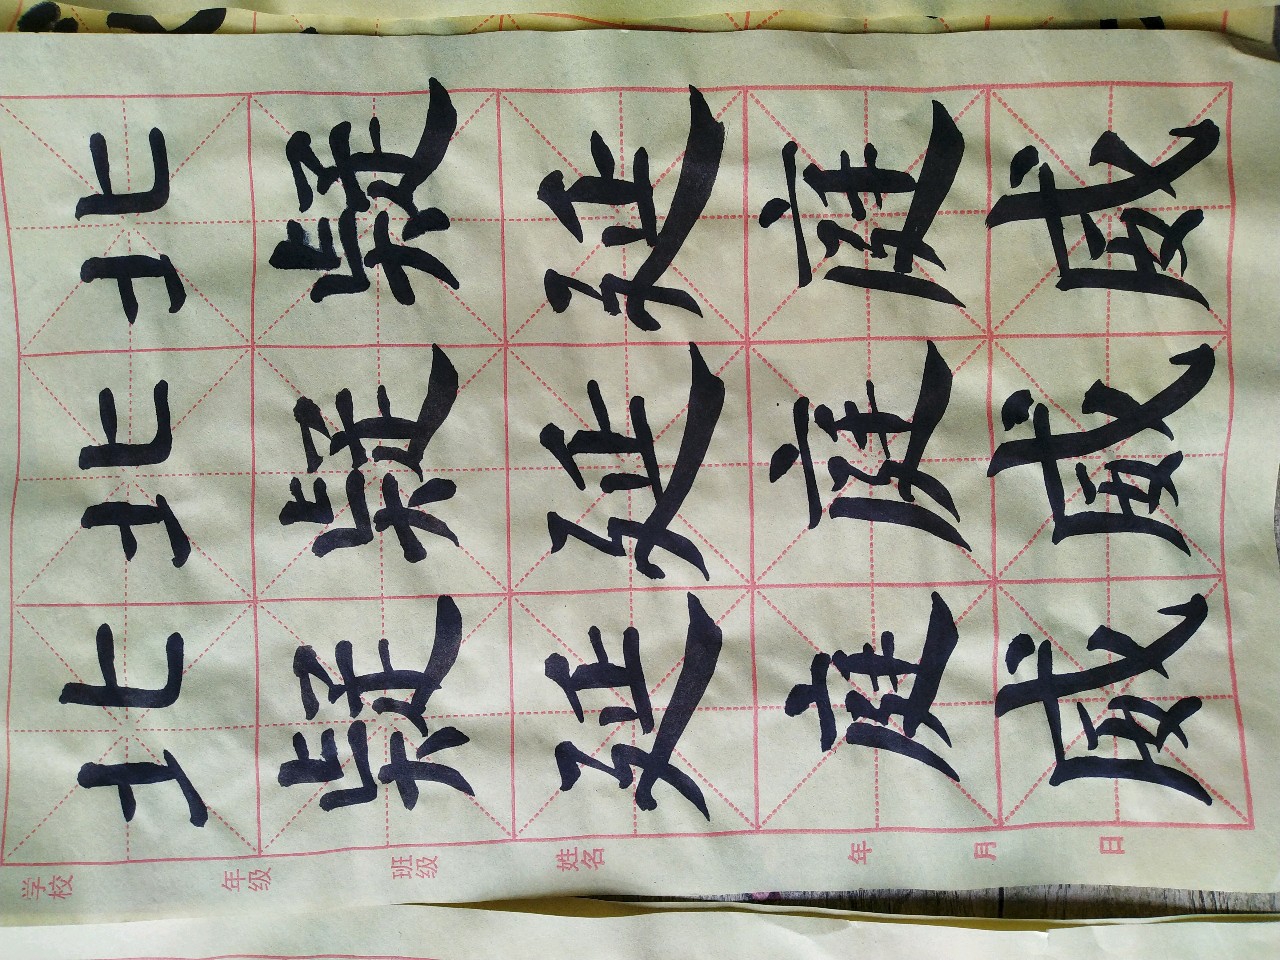 北疑延庭威
北疑延庭威
北疑延庭威
学校 年级 班级 姓名 年 月 日